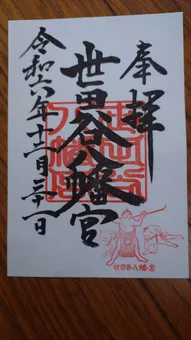 奉拝
世田谷八幡宮
令和六年十二月三十一日
世田谷八幡宮